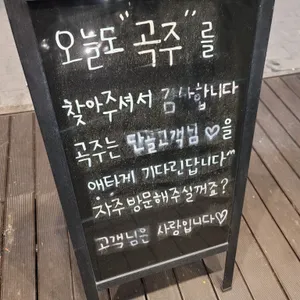 오늘도 "곡주"를
찾아주셔서 감사합니다
곡주는 단골고객님♡을
애타게 기다린답니다^^
자주 방문해주실꺼죠?
고객님은 사랑입니다♡